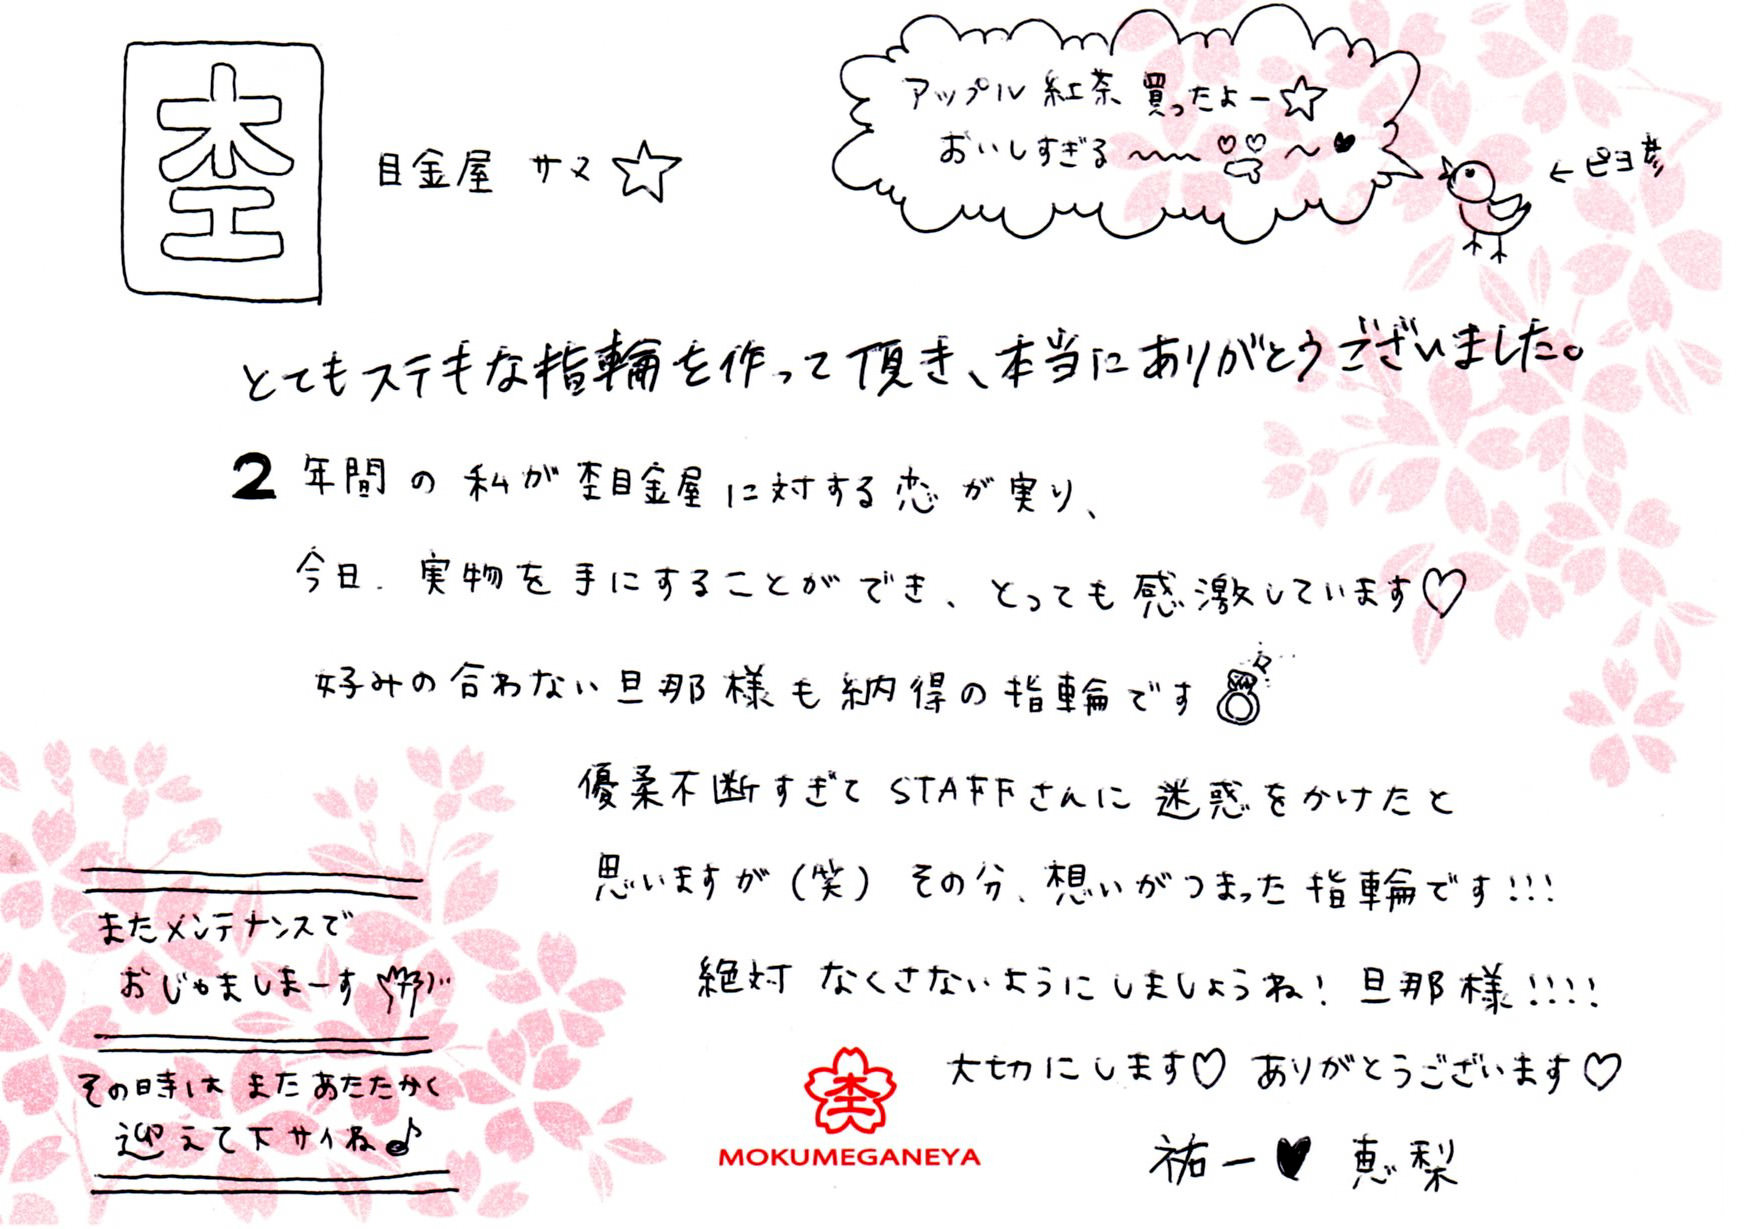 杢目金屋 サマ☆
アップル紅茶 買ったよー☆
おいしすぎる〜〜 〜♥
←ピヨ
とてもステキな指輪を作って頂き、本当にありがとうございました。
2年間の私が杢目金屋に対する恋が実り、
今日、実物を手にすることができ、とっても感激しています♡
好みの合わない旦那様も納得の指輪です
優柔不断すぎてSTAFFさんに迷惑をかけたと
思いますが(笑) その分、想いがつまった指輪です!!!
絶対なくさないようにしましょうね!旦那様!!!!
大切にします♡ ありがとうございます♡
祐一♥恵梨
またメンテナンスで
おじゃましまーす
その時はまたあたたかく
迎えて下サイね♪
杢
MOKUMEGANEYA